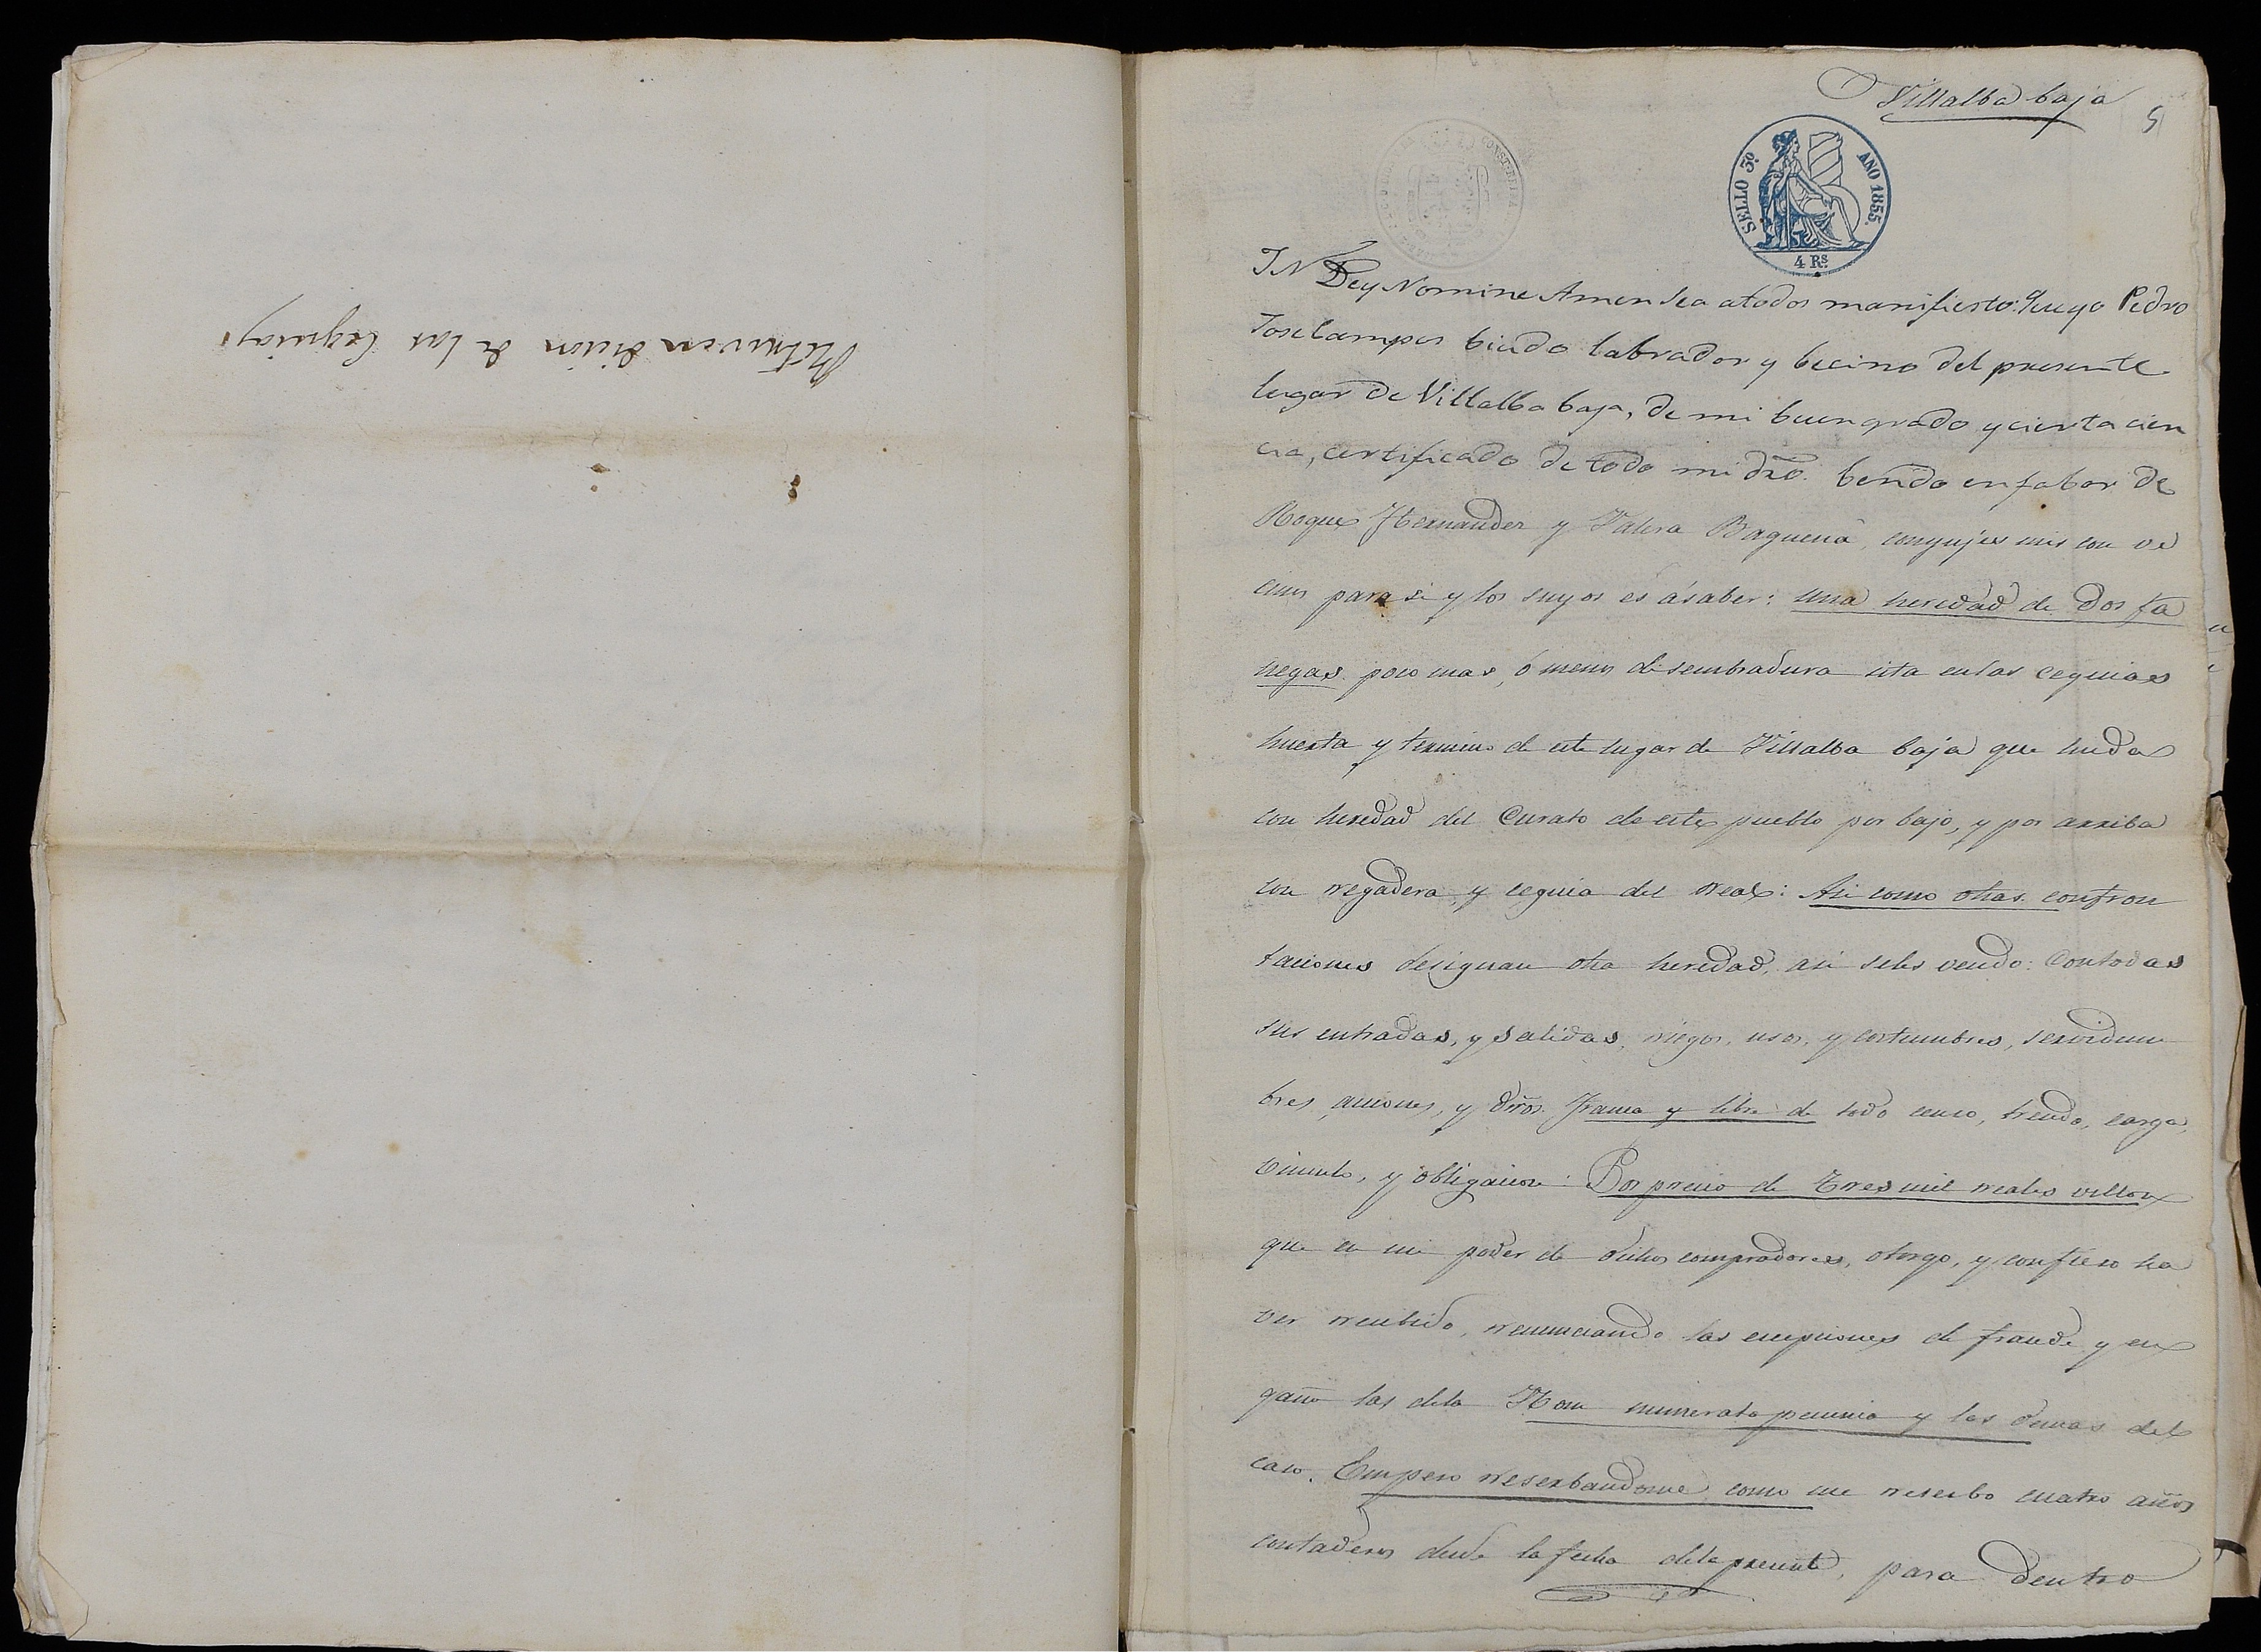 Retrivendicion de las Cequias,
Villalba baja
5
SELLO 3º. AÑO 1855.
4 Rs.
IN Dey Nomine Amen Sea atodos manifiesto: Que yo Pedro
Jose Campos biudo labrador y becino del presente
lugar de Villalba baja, de mi buen grado y cierta cien
cia, certificado de todo mi dro. bendo en fabor de
Roque Hernandez y Valera Baguena, conyujes mis con ve
cinos para si y los suyos es ásaber: una heredad de dos fa
negas poco mas, ó menos de sembradura sita en las cequias
huerta y termino de este lugar de Villalba baja que linda
con heredad del Curato de este pueblo por bajo, y por arriba
con regadera y cequia del real: Asi como otras confron
taciones designan otra heredad, asi seles vendo: Con todas
sus entradas, y salidas, riegos, usos, y costumbres, servidum
bres, acciones, y dros. franca y libre de todo censo, treudo, carga,
vinculo, y obligacion: Por precio de Tres mil reales vellon
que en mi poder de dichos compradores, otorgo, y confieso ha
ver recibido, renunciando las excepciones de fraude y en
gaño las dela Non numerata pecunia y las demas del
caso. Empero reserbandome como me reserbo cuatro años
contaderos desde la fecha dela presente, para dentro